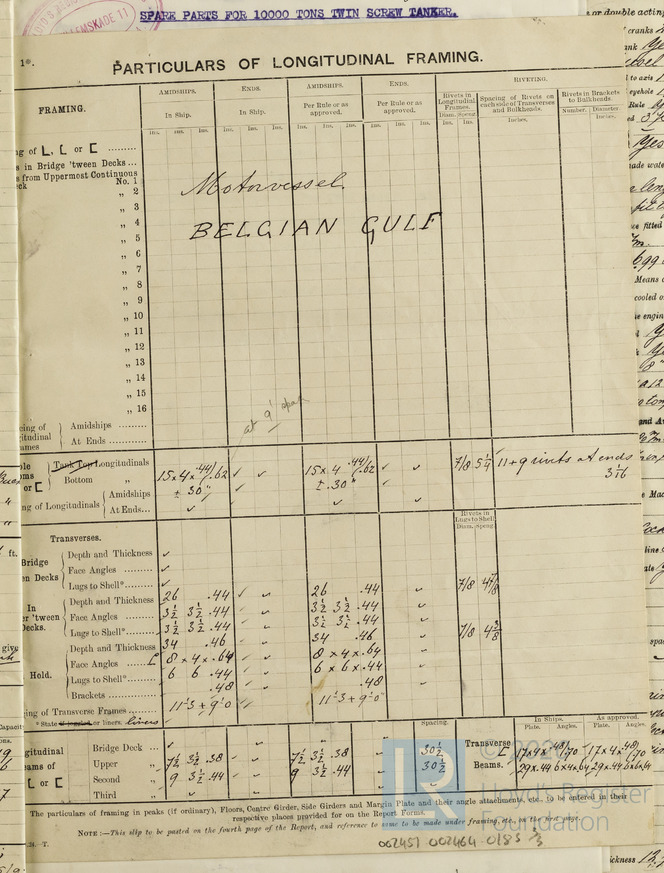 SPARE PARTS FOR 10000 TONS TWIN SCREW TANKER.
EMSKADE 11
1*.
PARTICULARS OF LONGITUDINAL FRAMING.
FRAMING.
AMIDSHIPS. ENDS. AMIDSHIPS. ENDS. RIVETING.
In Ship. In Ship. Per Rule or as approved. Per Rule or as approved.
Rivets in Longitudinal Frames. Spacing of Rivets on each side of Transverses and Bulkheads. Rivets in Brackets to Bulkheads.
Diam. Spcng. Inches. Number. Diameter. Inches.
Ins. Ins. Ins. Ins. Ins. Ins. Ins. Ins. Ins. Ins. Ins. Ins. Ins. Ins.
ng of L, L or C
s in Bridge 'tween Decks...
s from Uppermost Continuous
eck No. 1
„ 2
Motorvessel
„ 3
„ 4
BELGIAN GULF
„ 5
„ 6
„ 7
„ 8
„ 9
„ 10
„ 11
„ 12
„ 13
„ 14
„ 15
„ 16
at 9'
cing of Amidships
itudinal
ames At Ends
Tank Top Longitudinals
15 x 4 x .44/.62 15 x 4 .44/.62 7/8 5 1/4 11+9 rivets at ends
Bottom „
± 30" ± .30" 3 1/16
or C
ng of Longitudinals Amidships
At Ends...
Rivets in Lugs to Shell
Diam. Spcng.
Transverses.
Bridge Depth and Thickness
Face Angles
en Decks Lugs to Shell*
In Depth and Thickness 26 .44 26 .44 7/8 4 7/8
er 'tween Face Angles 3 1/2 3 1/2 .44 3 1/2 3 1/2 .44
Decks. Lugs to Shell* 3 1/2 3 1/2 .44 3 1/2 3 1/2 .44
Depth and Thickness 34 .46 34 .46 7/8 4 3/8
Hold. Face Angles 8 x 4 x .64 8 x 4 x .64
Lugs to Shell* 6 6 .44 6 x 6 x .44
Brackets .48 .48
ing of Transverse Frames 11'3 + 9'0 11'3 + 9'0"
*State if joggled or liners. liners
Spacing. In Ships. As approved.
Plate. Angles. Plate. Angles.
ngitudinal Bridge Deck ...
Beams of Upper „ 7 1/2 3 1/2 .38 7 1/2 3 1/2 .38 30 1/2 Transverse 17x4x.48/.70 17x4x.48/.70
L or C Second „ 9 3 1/2 .44 9 3 1/2 .44 30 1/2 Beams. 29x.44 6x4x64 29x.44 6x4x64
Third „
The particulars of framing in peaks (if ordinary), Floors, Centre Girder, Side Girders and Margin Plate and their angle attachments, etc., to be entered in their
respective places provided for on the Report Forms.
NOTE :—This slip to be pasted on the fourth page of the Report, and reference to same to be made under framing, etc., on the first page.
Lloyd's Register
Foundation
002451 002464-0185 1/3